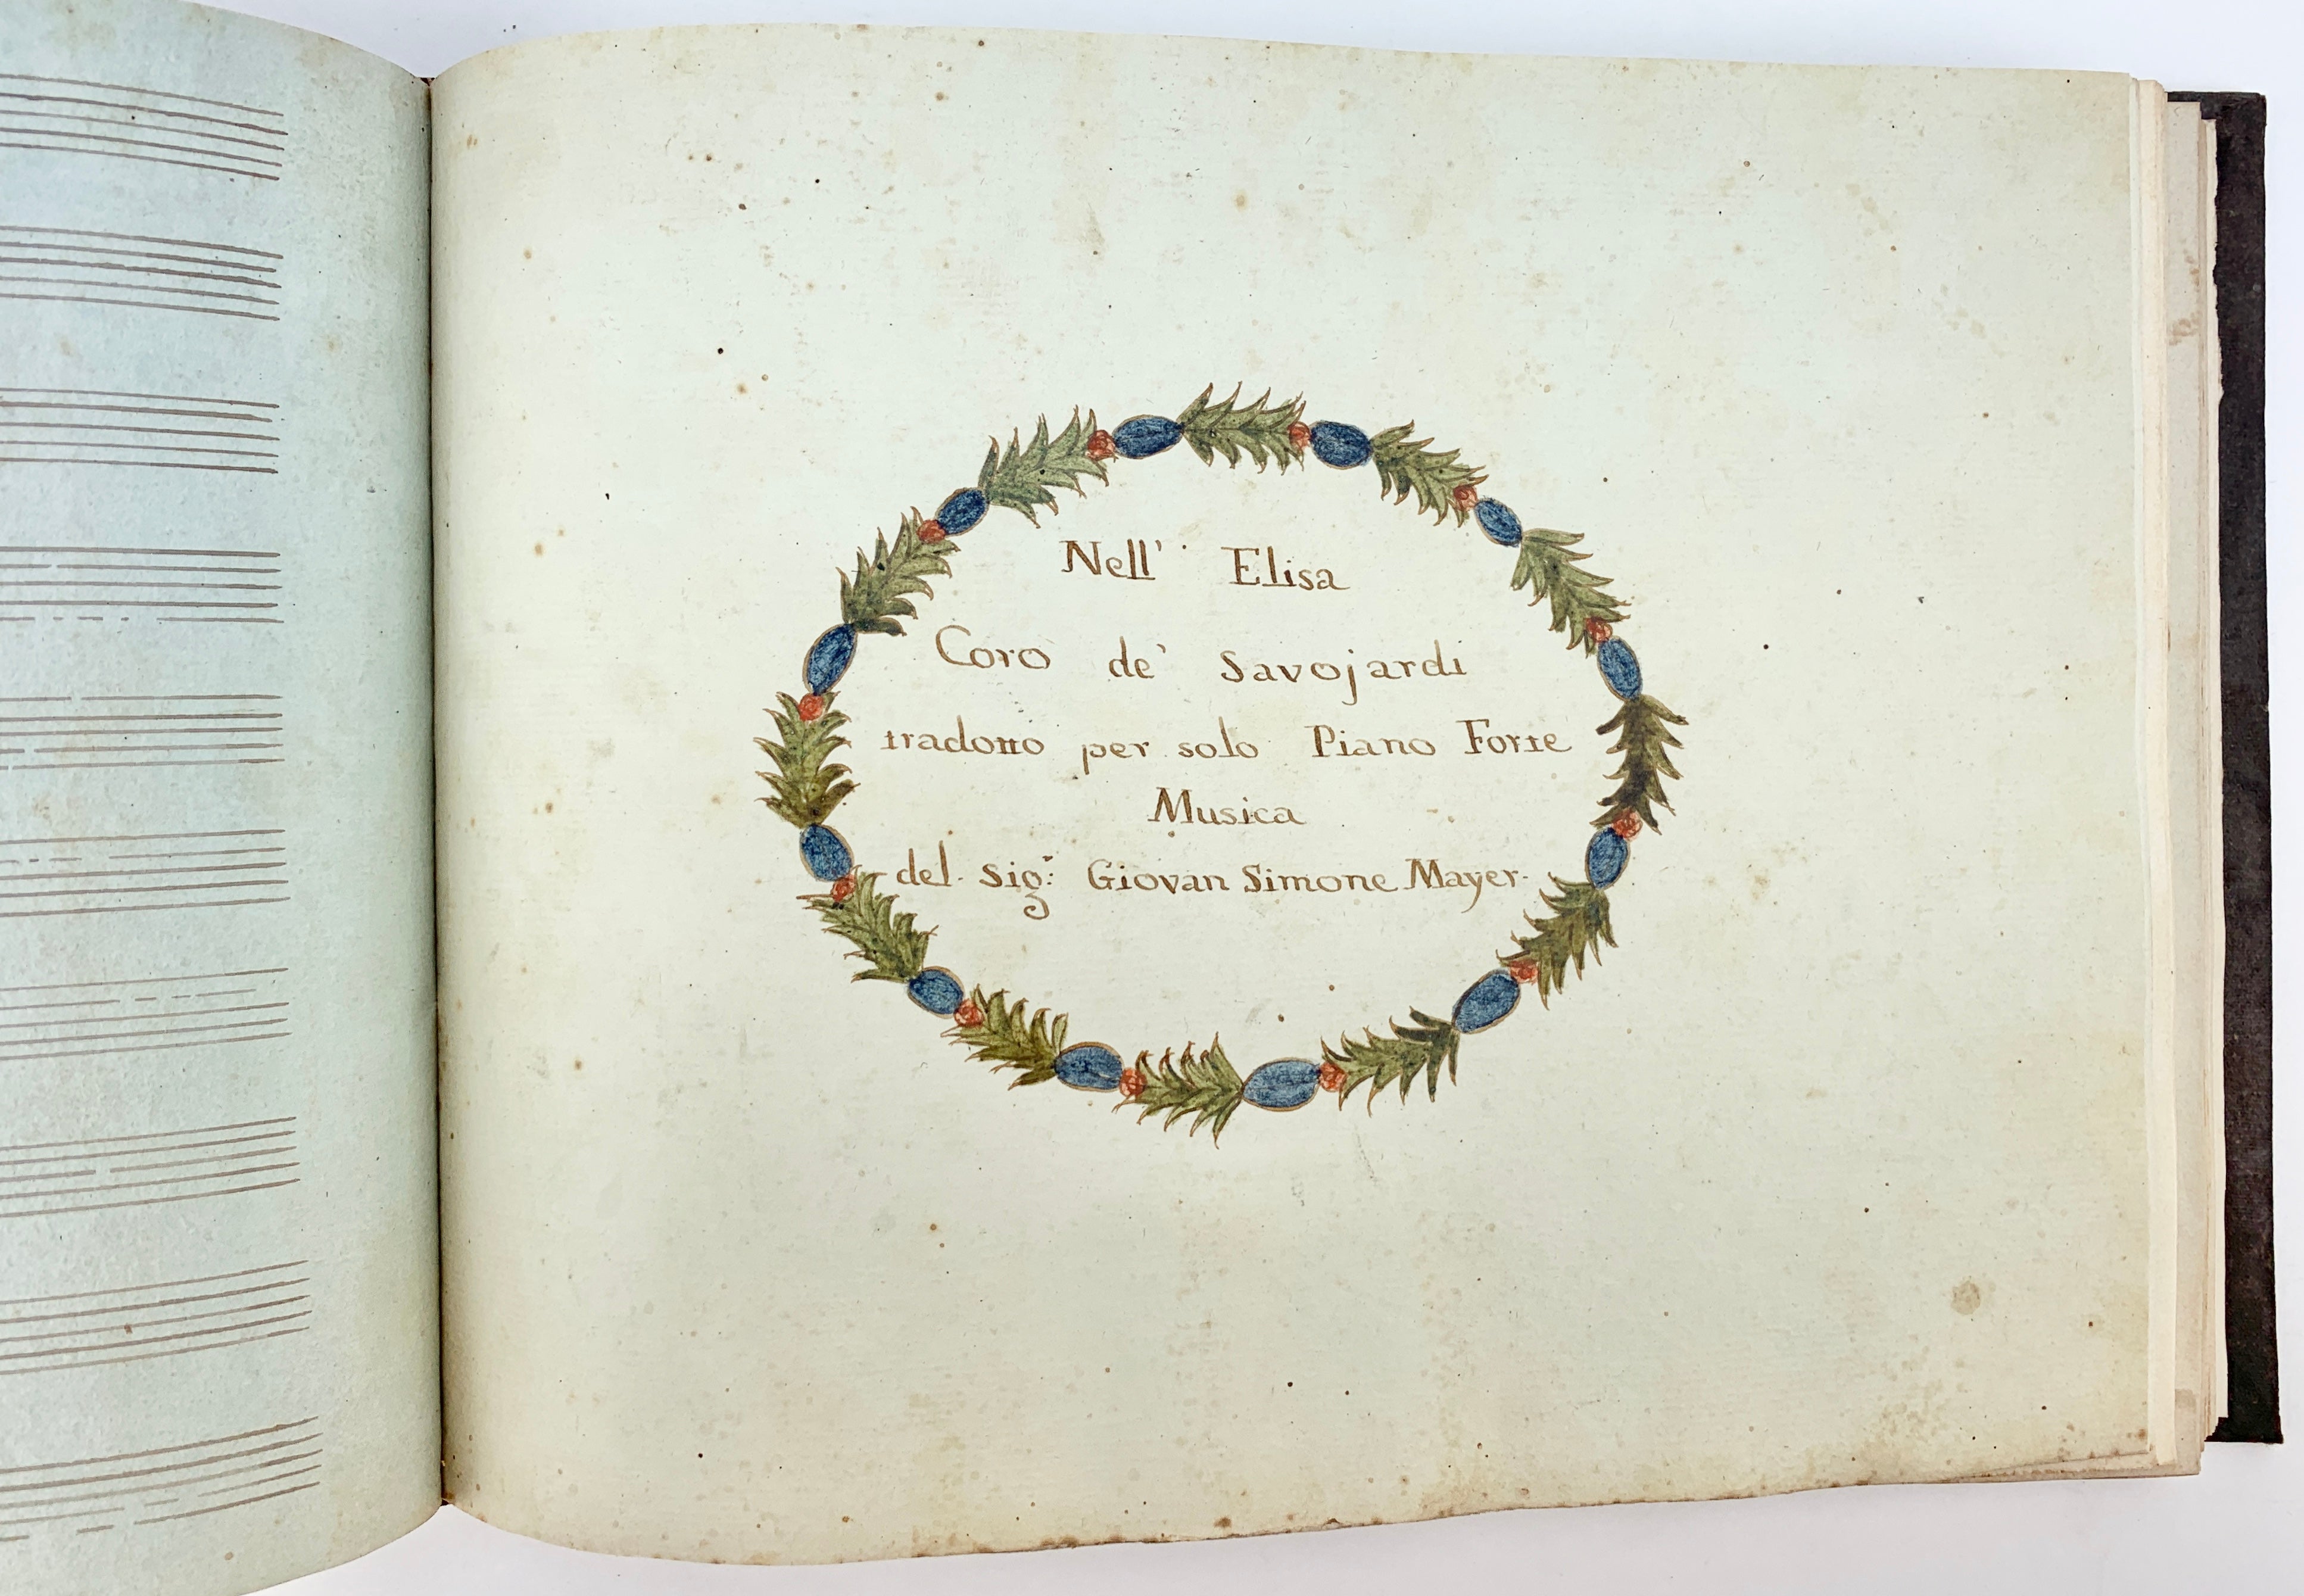 Nell' Elisa
Coro de' Savojardi
tradotto per solo Piano Forte
Musica
del sig: Giovan Simone Mayer.